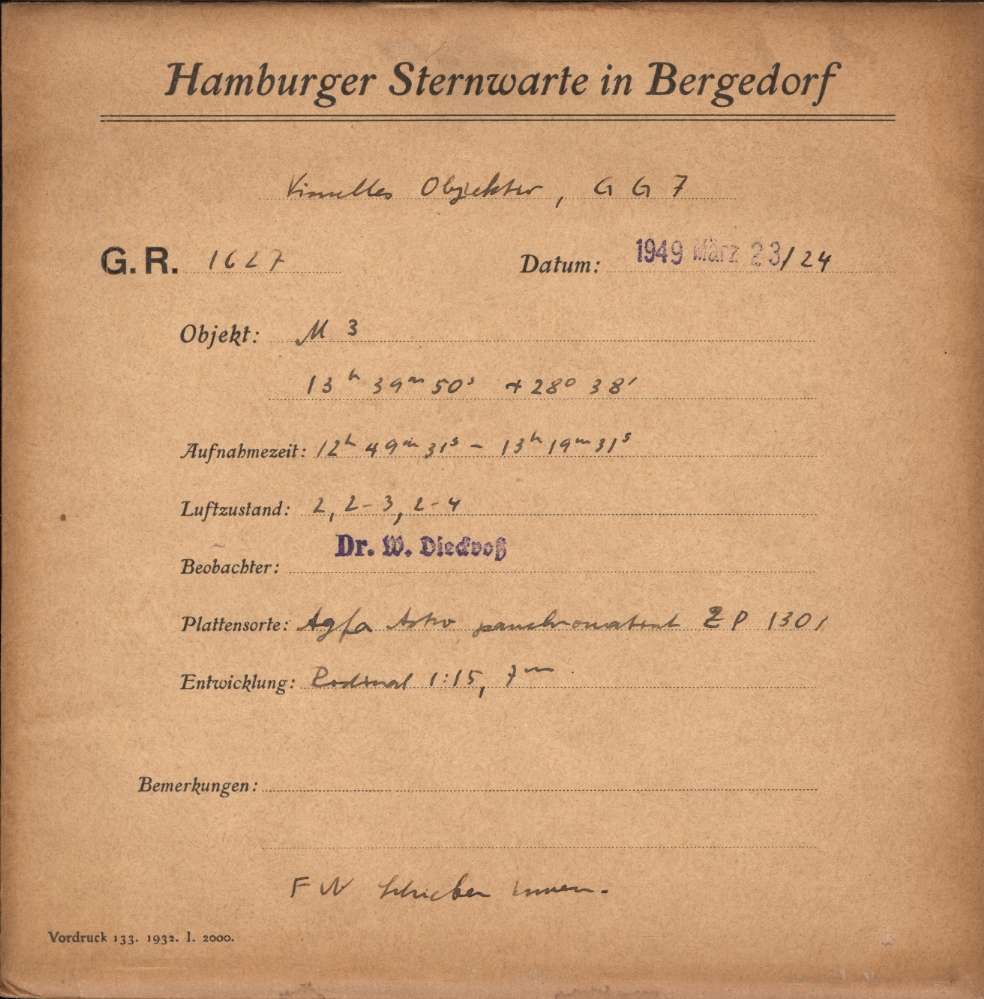 Hamburger Sternwarte in Bergedorf
Visuelles Objektiv, G G 7
G. R. 1627 Datum: 1949 März 23/24
Objekt: M 3
13ʰ 39ᵐ 50ˢ + 28° 38'
Aufnahmezeit: 12ʰ 49ᵐ 31ˢ – 13ʰ 19ᵐ 31ˢ
Luftzustand: 2, 2-3, 2-4
Beobachter: Dr. W. Dieckvoß
Plattensorte: Agfa Astro panchromatisch ZP 1301
Entwicklung: Rodinal 1:15, 7ᵐ
Bemerkungen:
F N Schieber innen.
Vordruck 133. 1932. I. 2000.